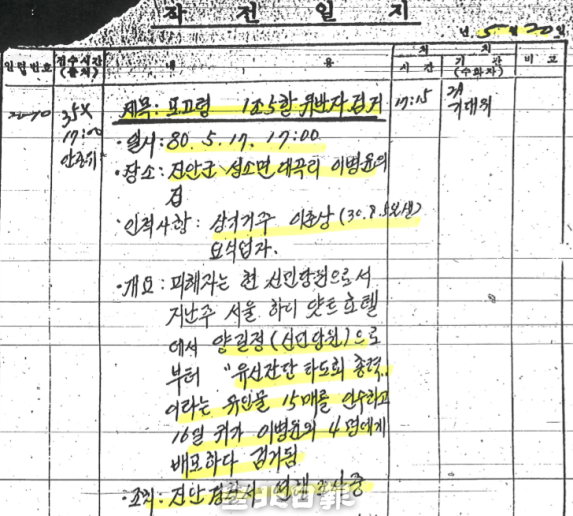 작전일지
년 5월 20일
일련번호 접수시간 (출처) 내 용 조 치 비고
시간 기관 (수화자)
20-70 35X 제목: 포고령 1조5항 위반자 검거 17:15
17:00 ·일시: 80. 5. 17. 17:00 기대위
·장소: 진안군 성수면 이병윤의
집
·인적사항: 상기거주 이춘상 (30. 8. 5생)
요식업자.
·개요: 피해자는 현 신민당원으로서
지난주 서울 하디 얏트 호텔
에서 양길정 (신민당원)으로
부터 "유신잔단 타도회 총력"
이라는 유인물 15매를 인수하고
16일 귀가 이병윤외 4명에게
배포하다 검거됨
·조치: 진안경찰서 연행 조사중
全北日報